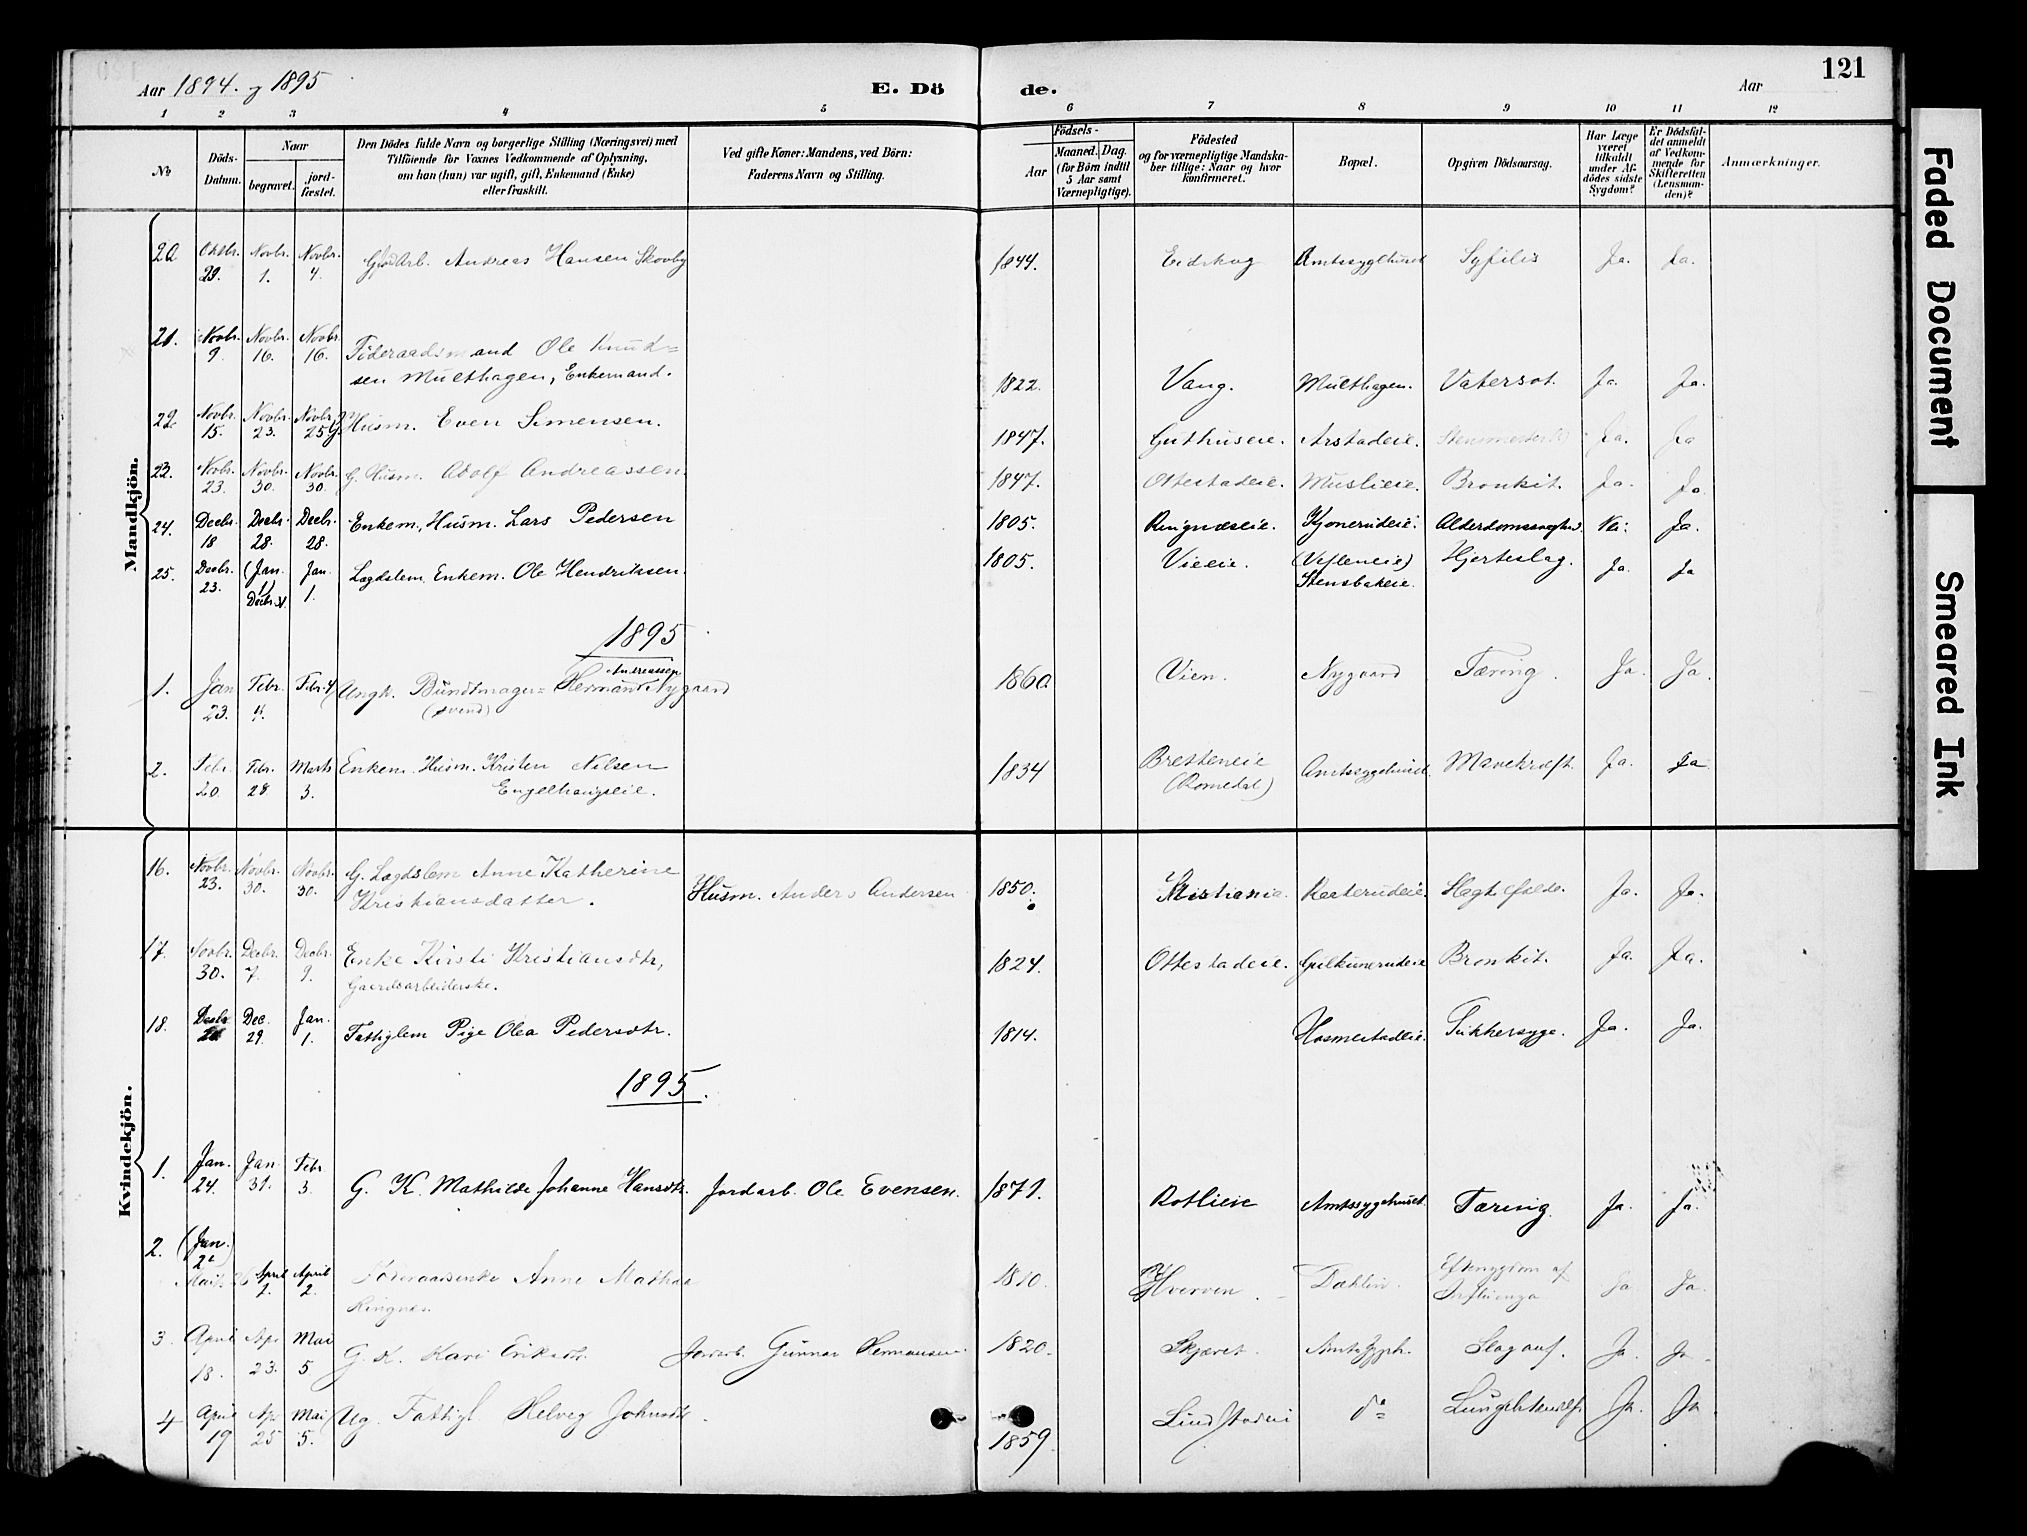 Aar 1894. g 1895
E. Dö de.
Aar
121
1 2 3 4 5 6 7 8 9 10 11 12
No
Döds-Datum.
Naar
begravet.
jordfæstet.
Den Dödes fulde Navn og borgerlige Stilling (Næringsvei) med
Tilföiende for Voxnes Vedkommende af Oplysning,
om han (hun) var ugift, gift, Enkemand (Enke)
eller fraskilt.
Ved gifte Koner: Mandens, ved Börn:
Faderens Navn og Stilling.
Födsels-
Aar
Maaned. Dag.
(for Börn indtil
5 Aar samt
Værnepligtige).
Födested
og for værnepligtige Mandskaber tillige: Naar og hvor
konfirmeret.
Bopæl.
Opgiven Dödsaarsag.
Har Læge
været
tilkaldt
under Afdödes sidste
Sygdom?
Er Dödsfaldet anmeldt
af Vedkommende for
Skifteretten
(Lensmanden)?
Anmærkninger.
Mandkjön.
20 Oktbr. 29. Novbr. 1. Novbr. 4. Andreas Hansen Skovby 1844. Eidskog Amtssygehuset Syfilis Ja. Ja.
21. Novbr. 9. Novbr. 16. Novbr. 16. Föderaadsmand Ole Knud=
sen Multhagen, Enkemand. 1822. Vang. Multhagen. Vatersot. Ja. Ja.
22. Novbr. 15. Novbr. 23. Novbr. 25 G. Husm. Even Simensen. 1847. Guthuseie. Arstadeie. Ja. Ja
23. Novbr. 23. Novbr. 30. Novbr. 30. G. Husm. Adolf Andreassen. 1847. Ottestadeie. Muslieie. Bronkit. Ja. Ja.
24. Decbr. 18 Decbr. 28. Decbr. 28. Enkem. Husm. Lars Pedersen 1805. Ringnæseie. Kjonerudeie. Nei. Ja.
25. Decbr. 23. (Jan. 1) Decbr. 31 Jan. 1. Lægdslem Enkem. Ole Hendriksen. 1805. Vieeie. Stensbakeie. Hjerteslag. Ja. Ja
1895
1. Jan 23. Febr. 4. Febr. 4 Ungk. Bundtmager= Herman Andreassen Nygaard
(svend) 1860. Vien. Nygaard Tæring. Ja. Ja.
2. Febr. 20. Febr. 28. Marts 3. Enkem. Husm. Kristen Nilsen
Engelhaugseie. 1834 Bretteneie
(Romedal) Amtssygehuset. Mavekræft. Ja. Ja
Kvindekjön.
16. Novbr. 23. Novbr. 30. Novbr. 30. G. Lægdslem Anne Katherine
Kristiansdatter. Husm. Anders Andersen 1850. Kristiania. Ja. Ja.
17. Novbr. 30. Decbr. 7. Decbr. 9. Enke Kirsti Kristiansdtr,
Gaardsarbeiderske. 1824. Ottestadeie. Bronkit. Ja. Ja.
18. Decbr. Dec. 29. Jan. 1. Fattiglem Pige Olea Pedersdtr. 1814. Hosmestadeie. Sukkersyge. Ja. Ja.
1895.
1. Jan. 24. Jan. 31. Febr 3. G. K. Mathilde Johanne Hansdtr. Jordarb. Ole Evensen. 1871. Rotlieie Amtssygehuset. Tæring. Ja. Ja.
2. (Jan.) Marts 26 April 2. April 2. Föderaadsenke Anne Mathea
Ringnes. 1810. Hverven. Dæhlin. Eftersygdom af
Influenza Ja Ja.
3. April 18. Apr. 23. Mai 5 G. K. Kari Eriksdtr. Jordarb. Gunnar Hermansen. 1820. Skjæret. Slaganf. Ja. Ja.
4 April 19 Apr. 25 Mai 5. Ug. Fattigl. Helveg Johnsdtr. 1859. do Ja. Ja
Faded Document
Smeared Ink